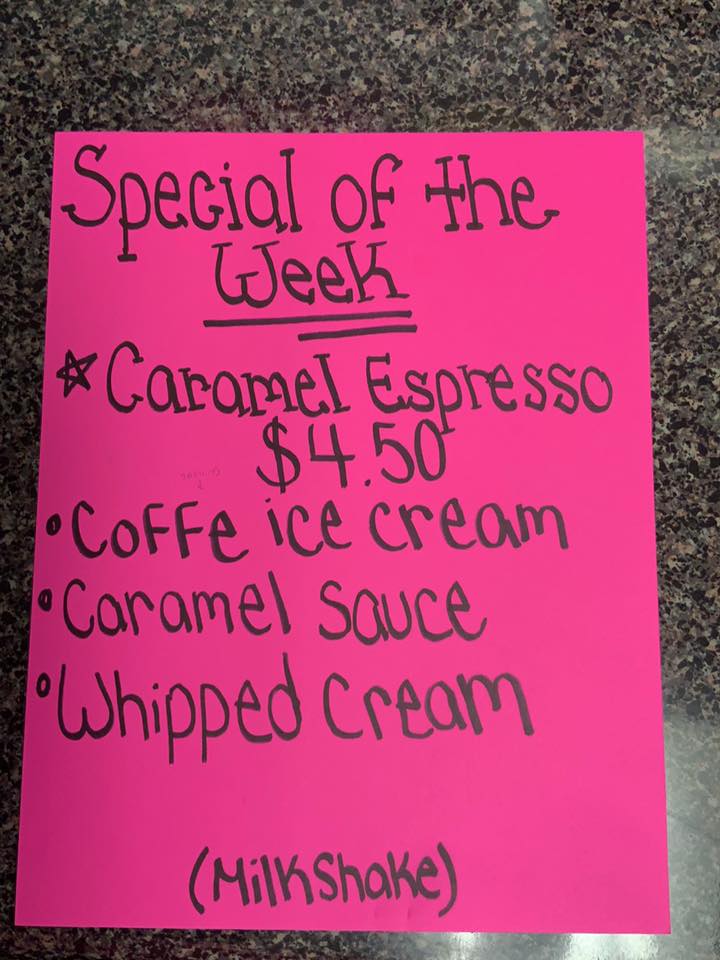 Special of the
Week
☆ Caramel Espresso
$4.50
• Coffe ice cream
• Caramel Sauce
• Whipped Cream
(Milkshake)